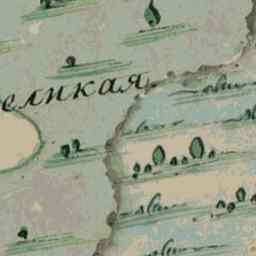 еликая